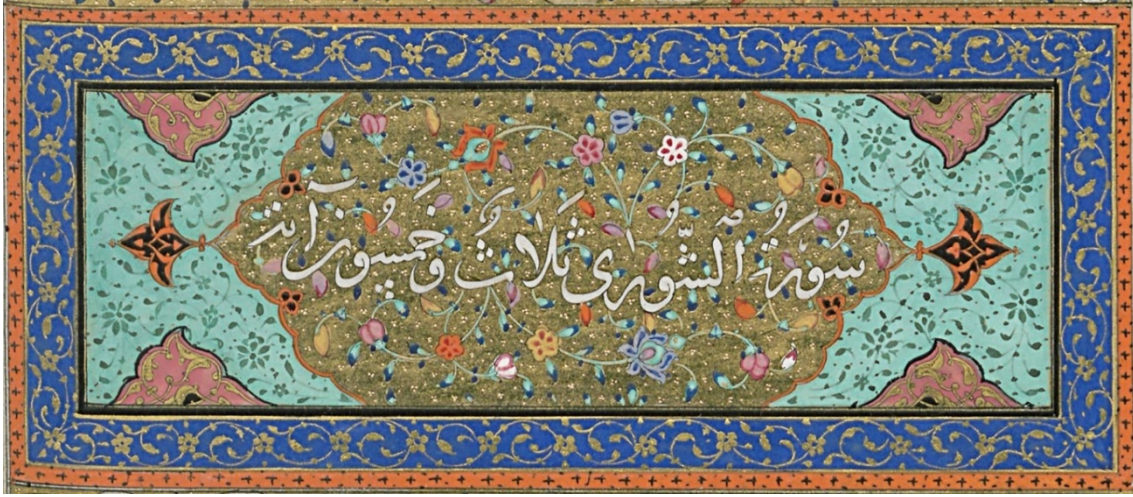 سُورَةُ الشُّورٰى ثَلَاثُ وَخَمْسُونَ آيَة